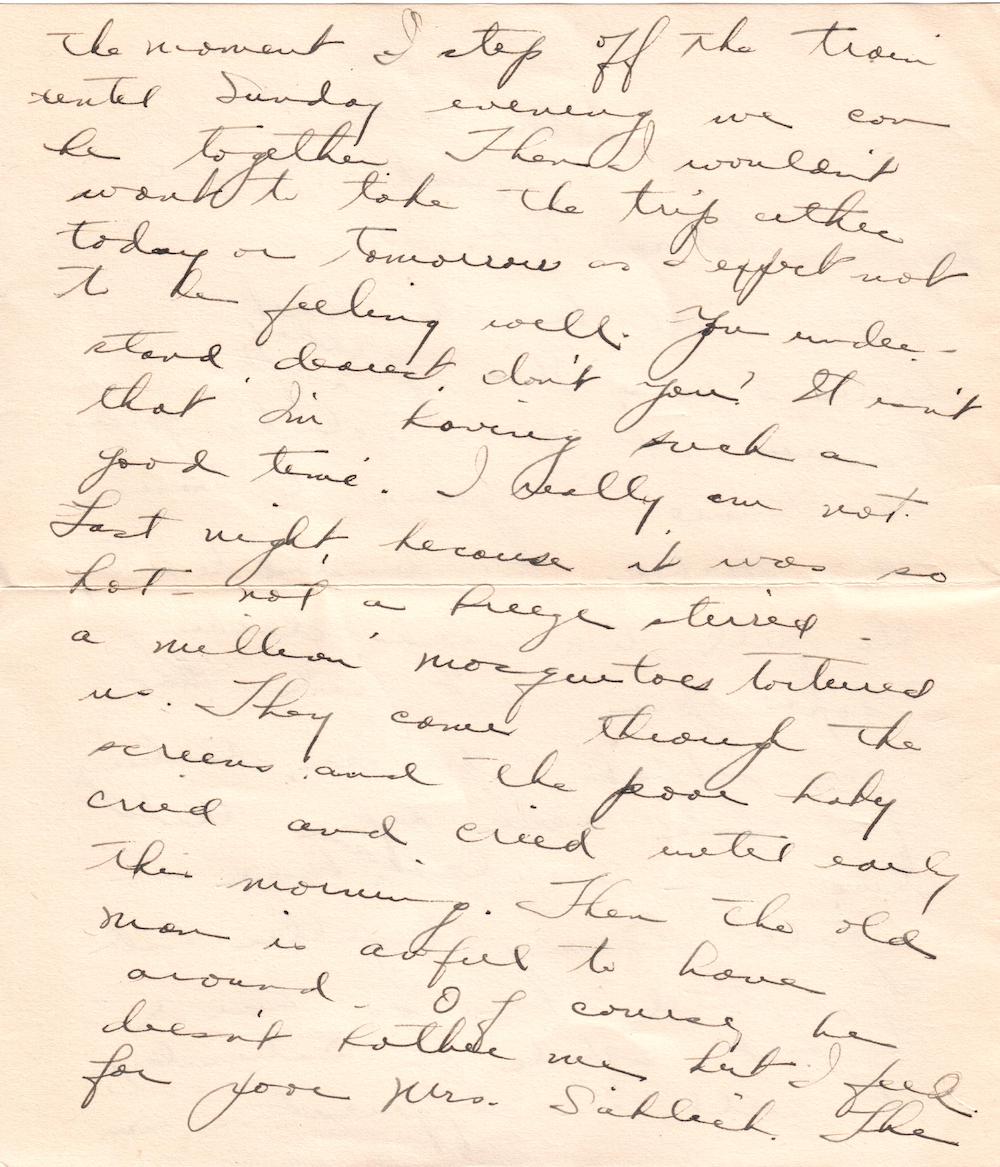 the moment I step off the train
until Sunday evening we can
be together. Then I wouldn't
want to take the trip either
today or tomorrow as I expect not
to be feeling well. You under-
stand, dearest, don't you? It isn't
that I'm having such a
good time. I really am not.
Last night, because it was so
hot - not a breeze stirred -
a million mosquitoes tortured
us. They come through the
screens and the poor baby
cried and cried until early
this morning. Then the old
man is awful to have
around. Of course, he
doesn't bother me, but I feel
for poor Mrs. The